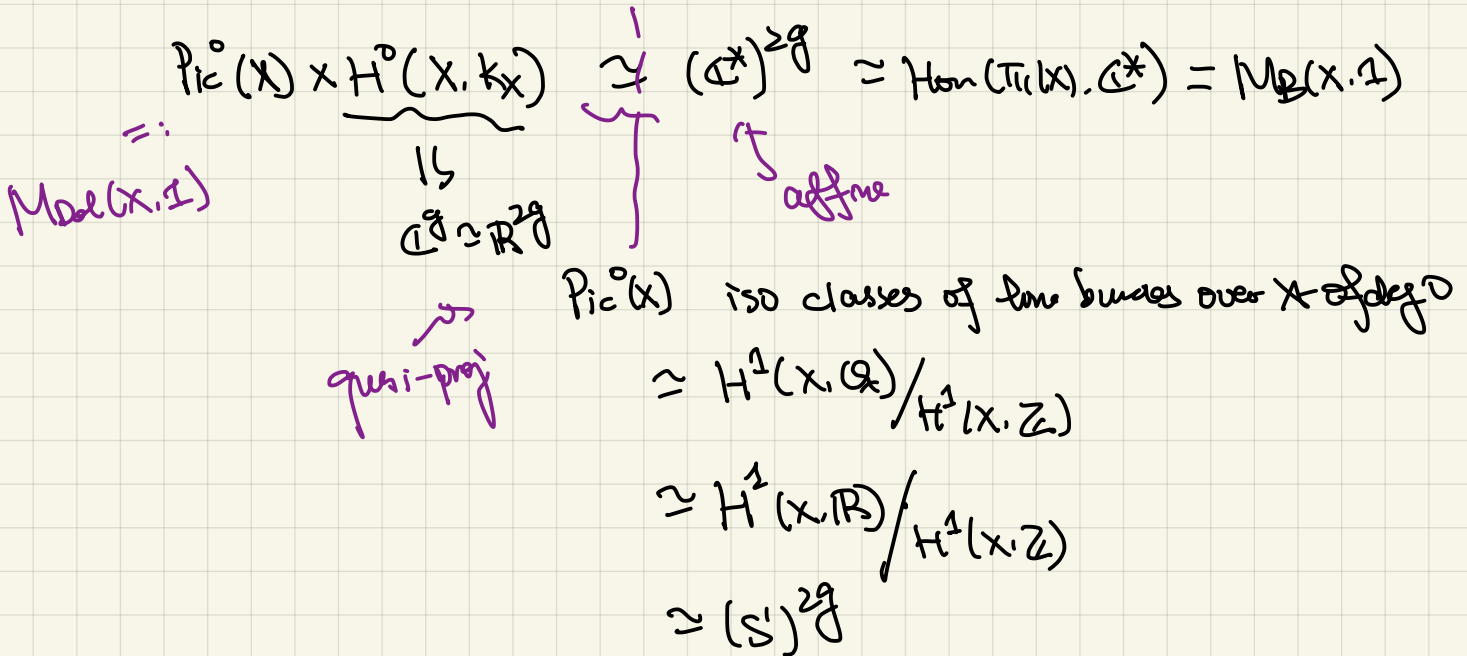 Pic⁰(X) × H⁰(X, K_X) ≃ (ℂ*)^{2g} ≃ Hom(π₁(X), ℂ*) = M_B(X, 1)
=:
M_Dol(X, 1)
≀∥
ℂ^g ≃ ℝ^{2g}
affine
Pic⁰(X) iso classes of line bundles over X of deg 0
quasi-proj
≃ H¹(X, O_X) / H¹(X, ℤ)
≃ H¹(X, ℝ) / H¹(X, ℤ)
≃ (S¹)^{2g}